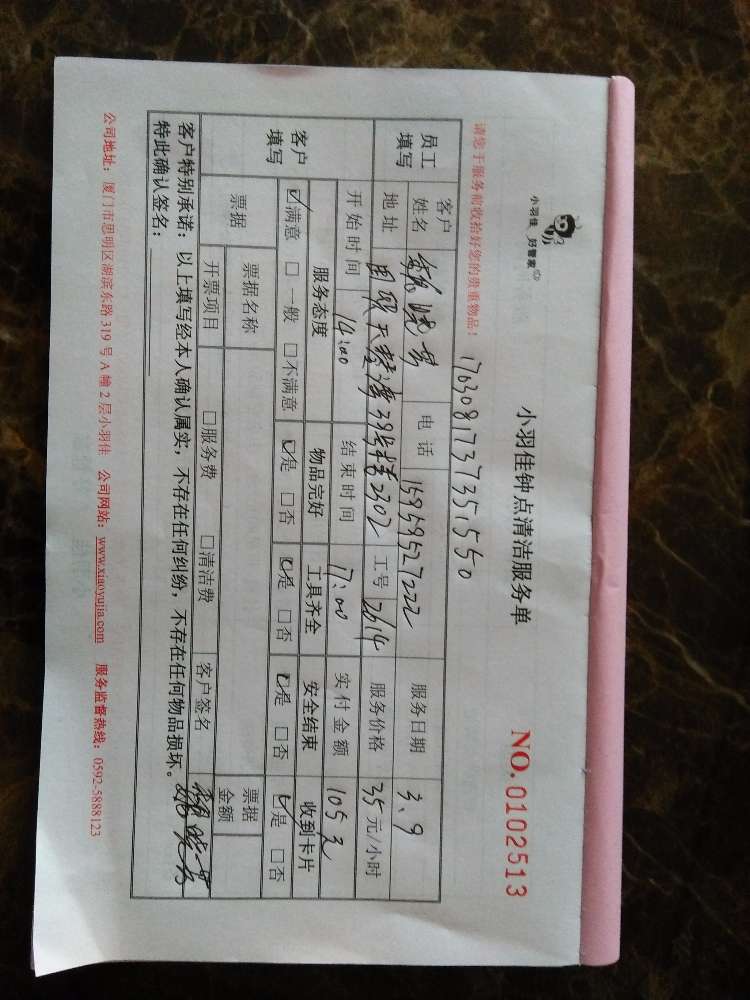 小羽佳 好管家
小羽佳钟点清洁服务单
NO. 0102513
请您于服务前收拾好您的贵重物品！
员工填写 客户姓名 电话 15959527222 服务日期 3.9
地址 2302 工号 2614 服务价格 35元/小时
客户填写 开始时间 14:00 结束时间 17:00 实付金额 105元
服务态度 物品完好 工具齐全 安全结束 收到卡片
☑满意 □一般 □不满意 ☑是 □否 ☑是 □否 ☑是 □否 ☑是 □否
票据 票据名称 票据金额
开票项目 □服务费 □清洁费 客户签名
客户特别承诺：以上填写经本人确认属实，不存在任何纠纷，不存在任何物品损坏。
特此确认签名：
公司地址：厦门市思明区湖滨东路 319 号 A 幢 2 层小羽佳 公司网站：www.xiaoyujia.com 服务监督热线：0592-5888123